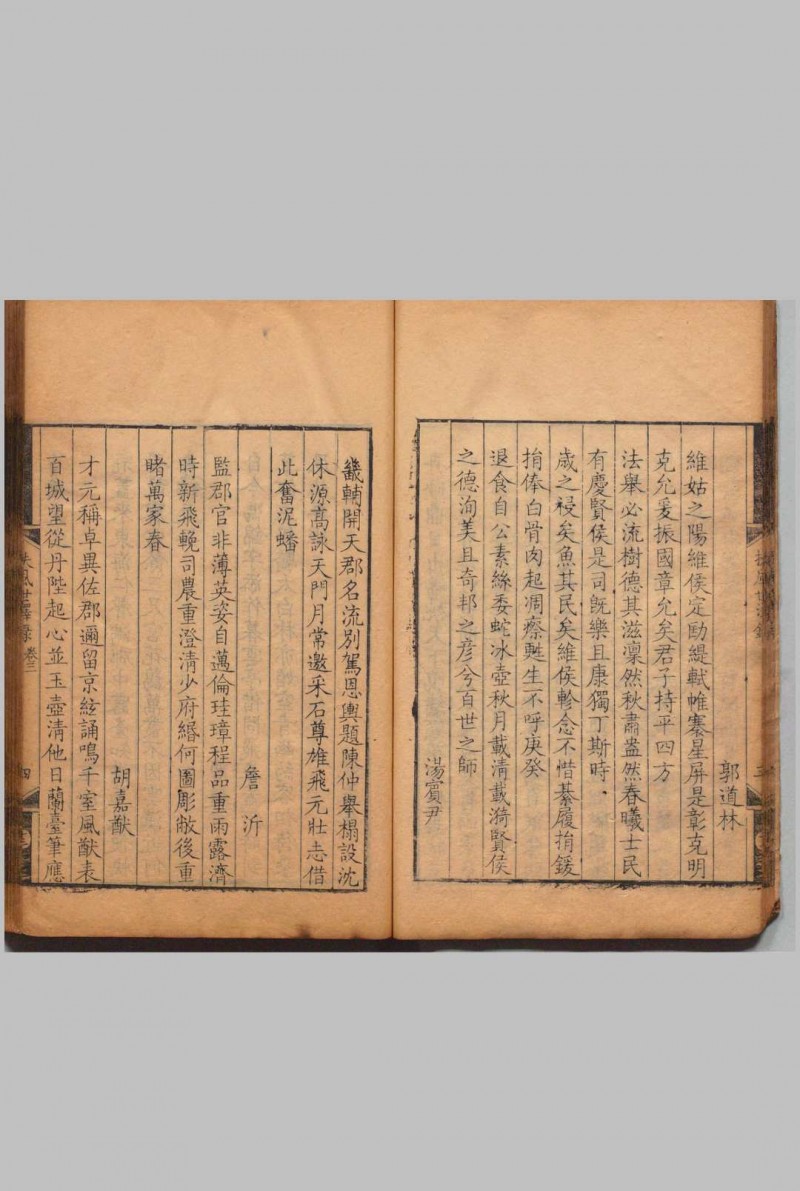 郭道林
維姑之陽維侯定勱緹軾帷褰星屏是彰克明
克允爰振國章允矣君子持平四方
法舉必流樹德其滋凜然秋肅盎然春曦士民
有慶賢侯是司旣樂且康獨丁斯時
歲之祲矣魚其民矣維侯軫念不惜綦履捐鍰
捐俸白骨肉起凋瘵甦生不呼庚癸
退食自公素絲委蛇冰壺秋月載淸載漪賢侯
之德洵美且奇邦之彥兮百世之師
湯賓尹
畿輔開天郡名流別駕恩輿題陳仲舉榻設沈
休源高詠天門月常邀采石尊雄飛元壯志借
此奮泥蟠
詹沂
監郡官非薄英姿自邁倫珪璋程品重雨露濟
時新飛輓司農重澄淸少府緡何圖彫敝後重
睹萬家春
胡嘉猷
才元稱卓異佐郡邇留京絃誦鳴千室風猷表
百城望從丹陛起心並玉壺淸他日蘭臺筆應
扶風世澤錄
卷三
四